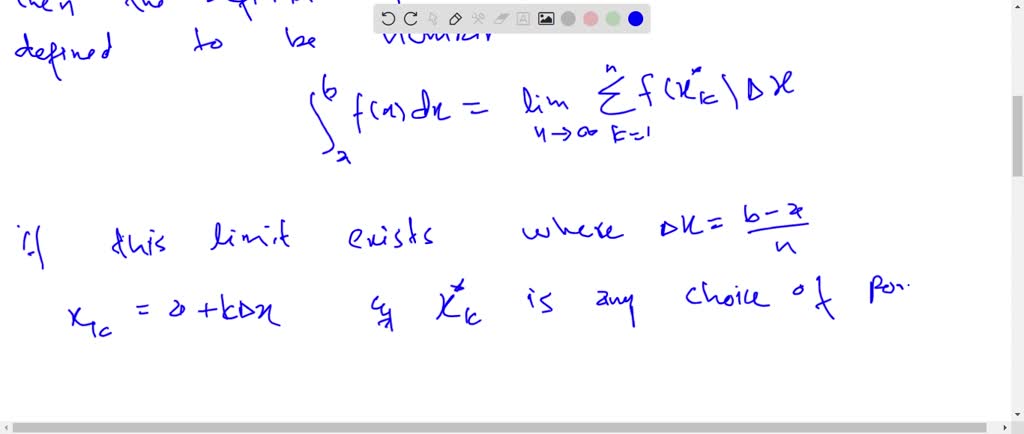 then the
defined to be
∫_a^b f(x) dx = lim_{n→∞} Σ_{k=1}^n f(x*_k) Δx
if this limit exists where Δx = b-a/n
x_k = a + kΔx & x*_k is any choice of poi